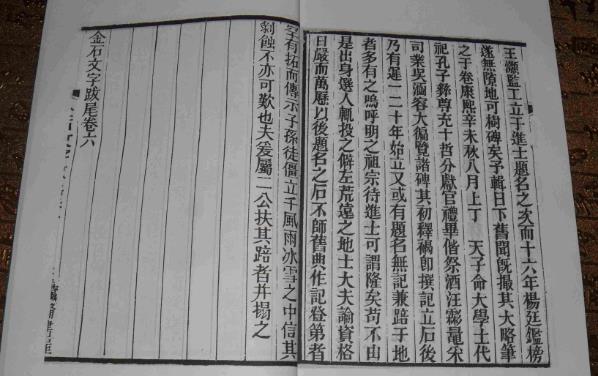 王灝監工立于進士題名之次而十六年楊廷鑑榜
遂無隙地可樹碑矣予輯日下舊聞旣撮其大略筆
之于卷康熙辛未秋八月上丁 天子命大學士代
祀孔子彝尊充十哲分獻官禮畢偕祭酒汪霦鼂采
司業吳涵容大徧覽諸碑其初釋褐卽撰記立石後
乃有遲一二十年始立又或有題名無記兼踣于地
者多有之嗚呼明之祖宗待進士可謂隆矣苟不由
是出身選人輒投之僻左荒遠之地士大夫論資格
日嚴而萬歷以後題名之石不師舊典作記登第者
罕有拓而傳示子孫徒僵立千風雨冰雪之中信其
剝蝕不亦可歎也夫爰屬二公扶其踣者并搨之
金石文字跋尾卷六